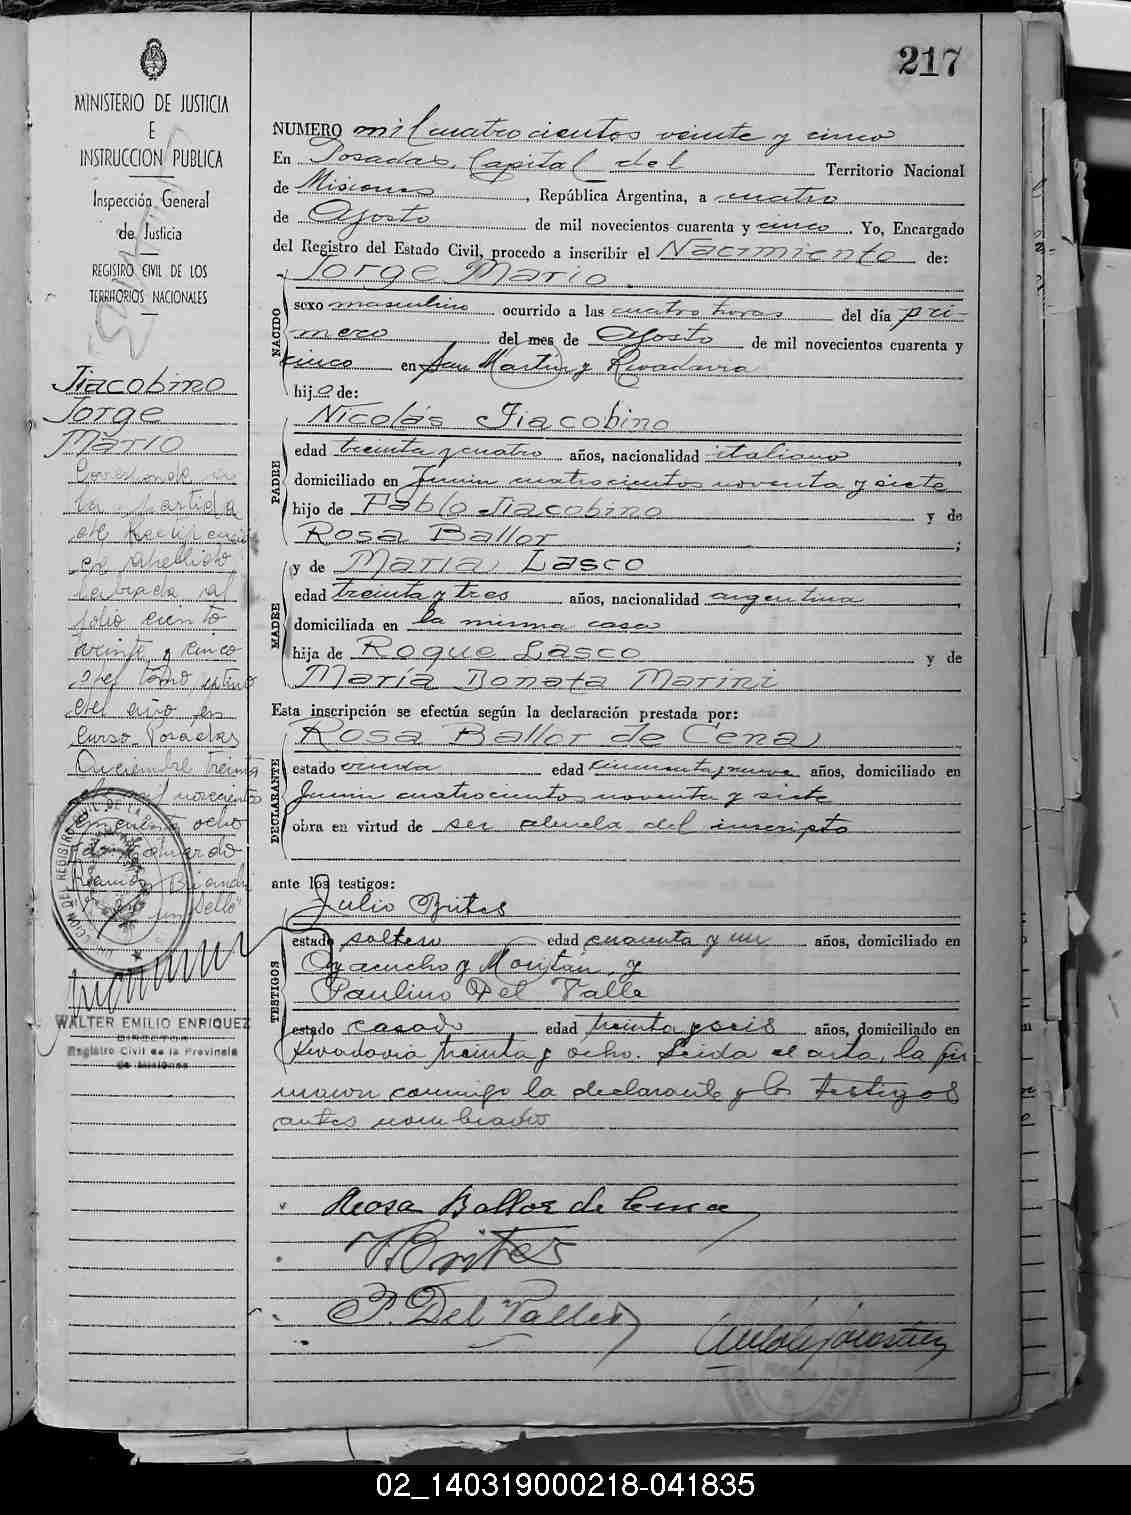 217
MINISTERIO DE JUSTICIA
E
INSTRUCCION PUBLICA
Inspección General
de Justicia
REGISTRO CIVIL DE LOS
TERRITORIOS NACIONALES
Jiacobino
Jorge
Mario
la partida
de Rectificación
de apellido
labrada al
folio ciento
veinte y cinco
del tomo
del año en
curso. Posadas
Diciembre treinta
de mil novecientos
cincuenta ocho
Eduardo
Ramón
un sello
WALTER EMILIO ENRIQUEZ
DIRECTOR
Registro Civil de la Provincia
de Misiones
NUMERO mil cuatrocientos veinte y cinco
En Posadas, Capital del Territorio Nacional
de Misiones, República Argentina, a cuatro
de Agosto de mil novecientos cuarenta y cinco. Yo, Encargado
del Registro del Estado Civil, procedo a inscribir el Nacimiento de:
Jorge Mario
NACIDO
sexo masculino ocurrido a las cuatro horas del día pri-
mero del mes de Agosto de mil novecientos cuarenta y
cinco en San Martin y Rivadavia
hijo de:
Nicolás Jiacobino
PADRE
edad treinta y cuatro años, nacionalidad italiano,
domiciliado en Junin cuatrocientos noventa y siete
hijo de Pablo Jiacobino y de
Rosa Ballor;
y de Maria Lasco
MADRE
edad treinta y tres años, nacionalidad argentina,
domiciliada en la misma casa
hija de Roque Lasco y de
María Donata Marini
Esta inscripción se efectúa según la declaración prestada por:
Rosa Ballor de Cena
DECLARANTE
estado viuda edad cincuenta y nueve años, domiciliado en
Junin cuatrocientos noventa y siete
obra en virtud de ser abuela del inscripto
ante los testigos:
Julio Brites
TESTIGOS
estado soltero edad cuarenta y un años, domiciliado en
Ayacucho y Moritán, y
Paulino Del Valle
estado casado edad treinta y seis años, domiciliado en
Rivadavia treinta y ocho. Leida el acta, la fir-
maron conmigo la declarante y los testigos
antes nombrados
Rosa Ballor de Cena
J. Brites
P. Del Valle
02_140319000218-041835